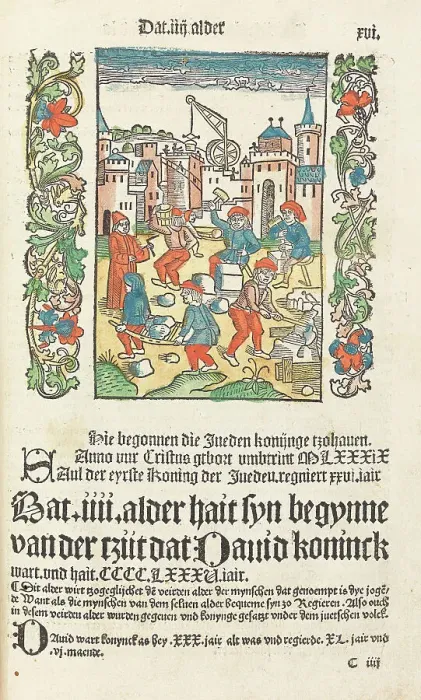 Dat .iiij. alder
xvi.
Hie begonnen die Jueden konijnge tzohauen.
Anno vur Cristus gebort vmbtrint MLXXXiX
SAul der eyrste Koning der Jueden. regniert xxvi. iair
Dat .iiii. alder hait syn begynne
van der tzijt dat Dauid koninck
wart. vnd hait. CCCC. LXXXV. iair.
Dit alder wirt tzogeglijchet de veirden alder der mynschen dat genoempt is dye joge
de Want als die mynschen van dem seluen alder bequeme syn zo Regieren. Also ouch
in desem veirden alder wurden gegeuen vnd konynge gesatzt vnder dem jueetschen volck.
DAuid wart konynck as hey .XXX. jair alt was vnd regierde. XL. jair vnd
.vj. maende.
C iiij